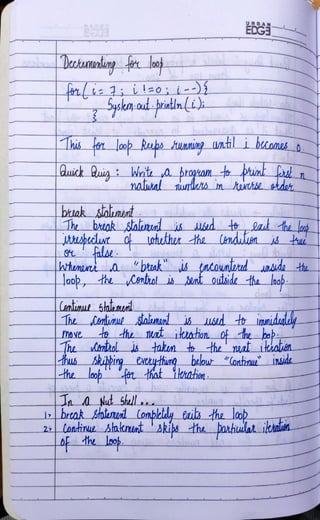 URBAN
EDGE
Decrementing for loop
for ( i = 7; i != 0; i--) {
System.out.println(i);
}
This for loop keeps running until i becomes 0
Quick Quiz : Write a program to print first n
natural numbers in reverse order
break statement
The break statement is used to exit the loop
irrespective of whether the condition is true
or false.
Whenever a "break" is encountered inside the
loop, the control is sent outside the loop.
Continue Statement
The continue statement is used to immidiately
move to the next iteration of the loop.
The control is taken to the next iteration
thus skipping everything below "Continue" inside
the loop for that iteration.
In a Nut Shell ...
1> break statement completely exits the loop
2> Continue statement skips the particular iteration
of the loop.